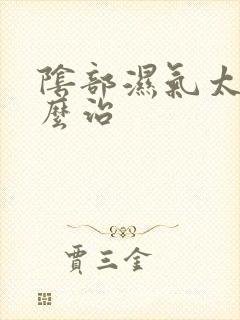 陰部濕氣太
麼治
賈三金